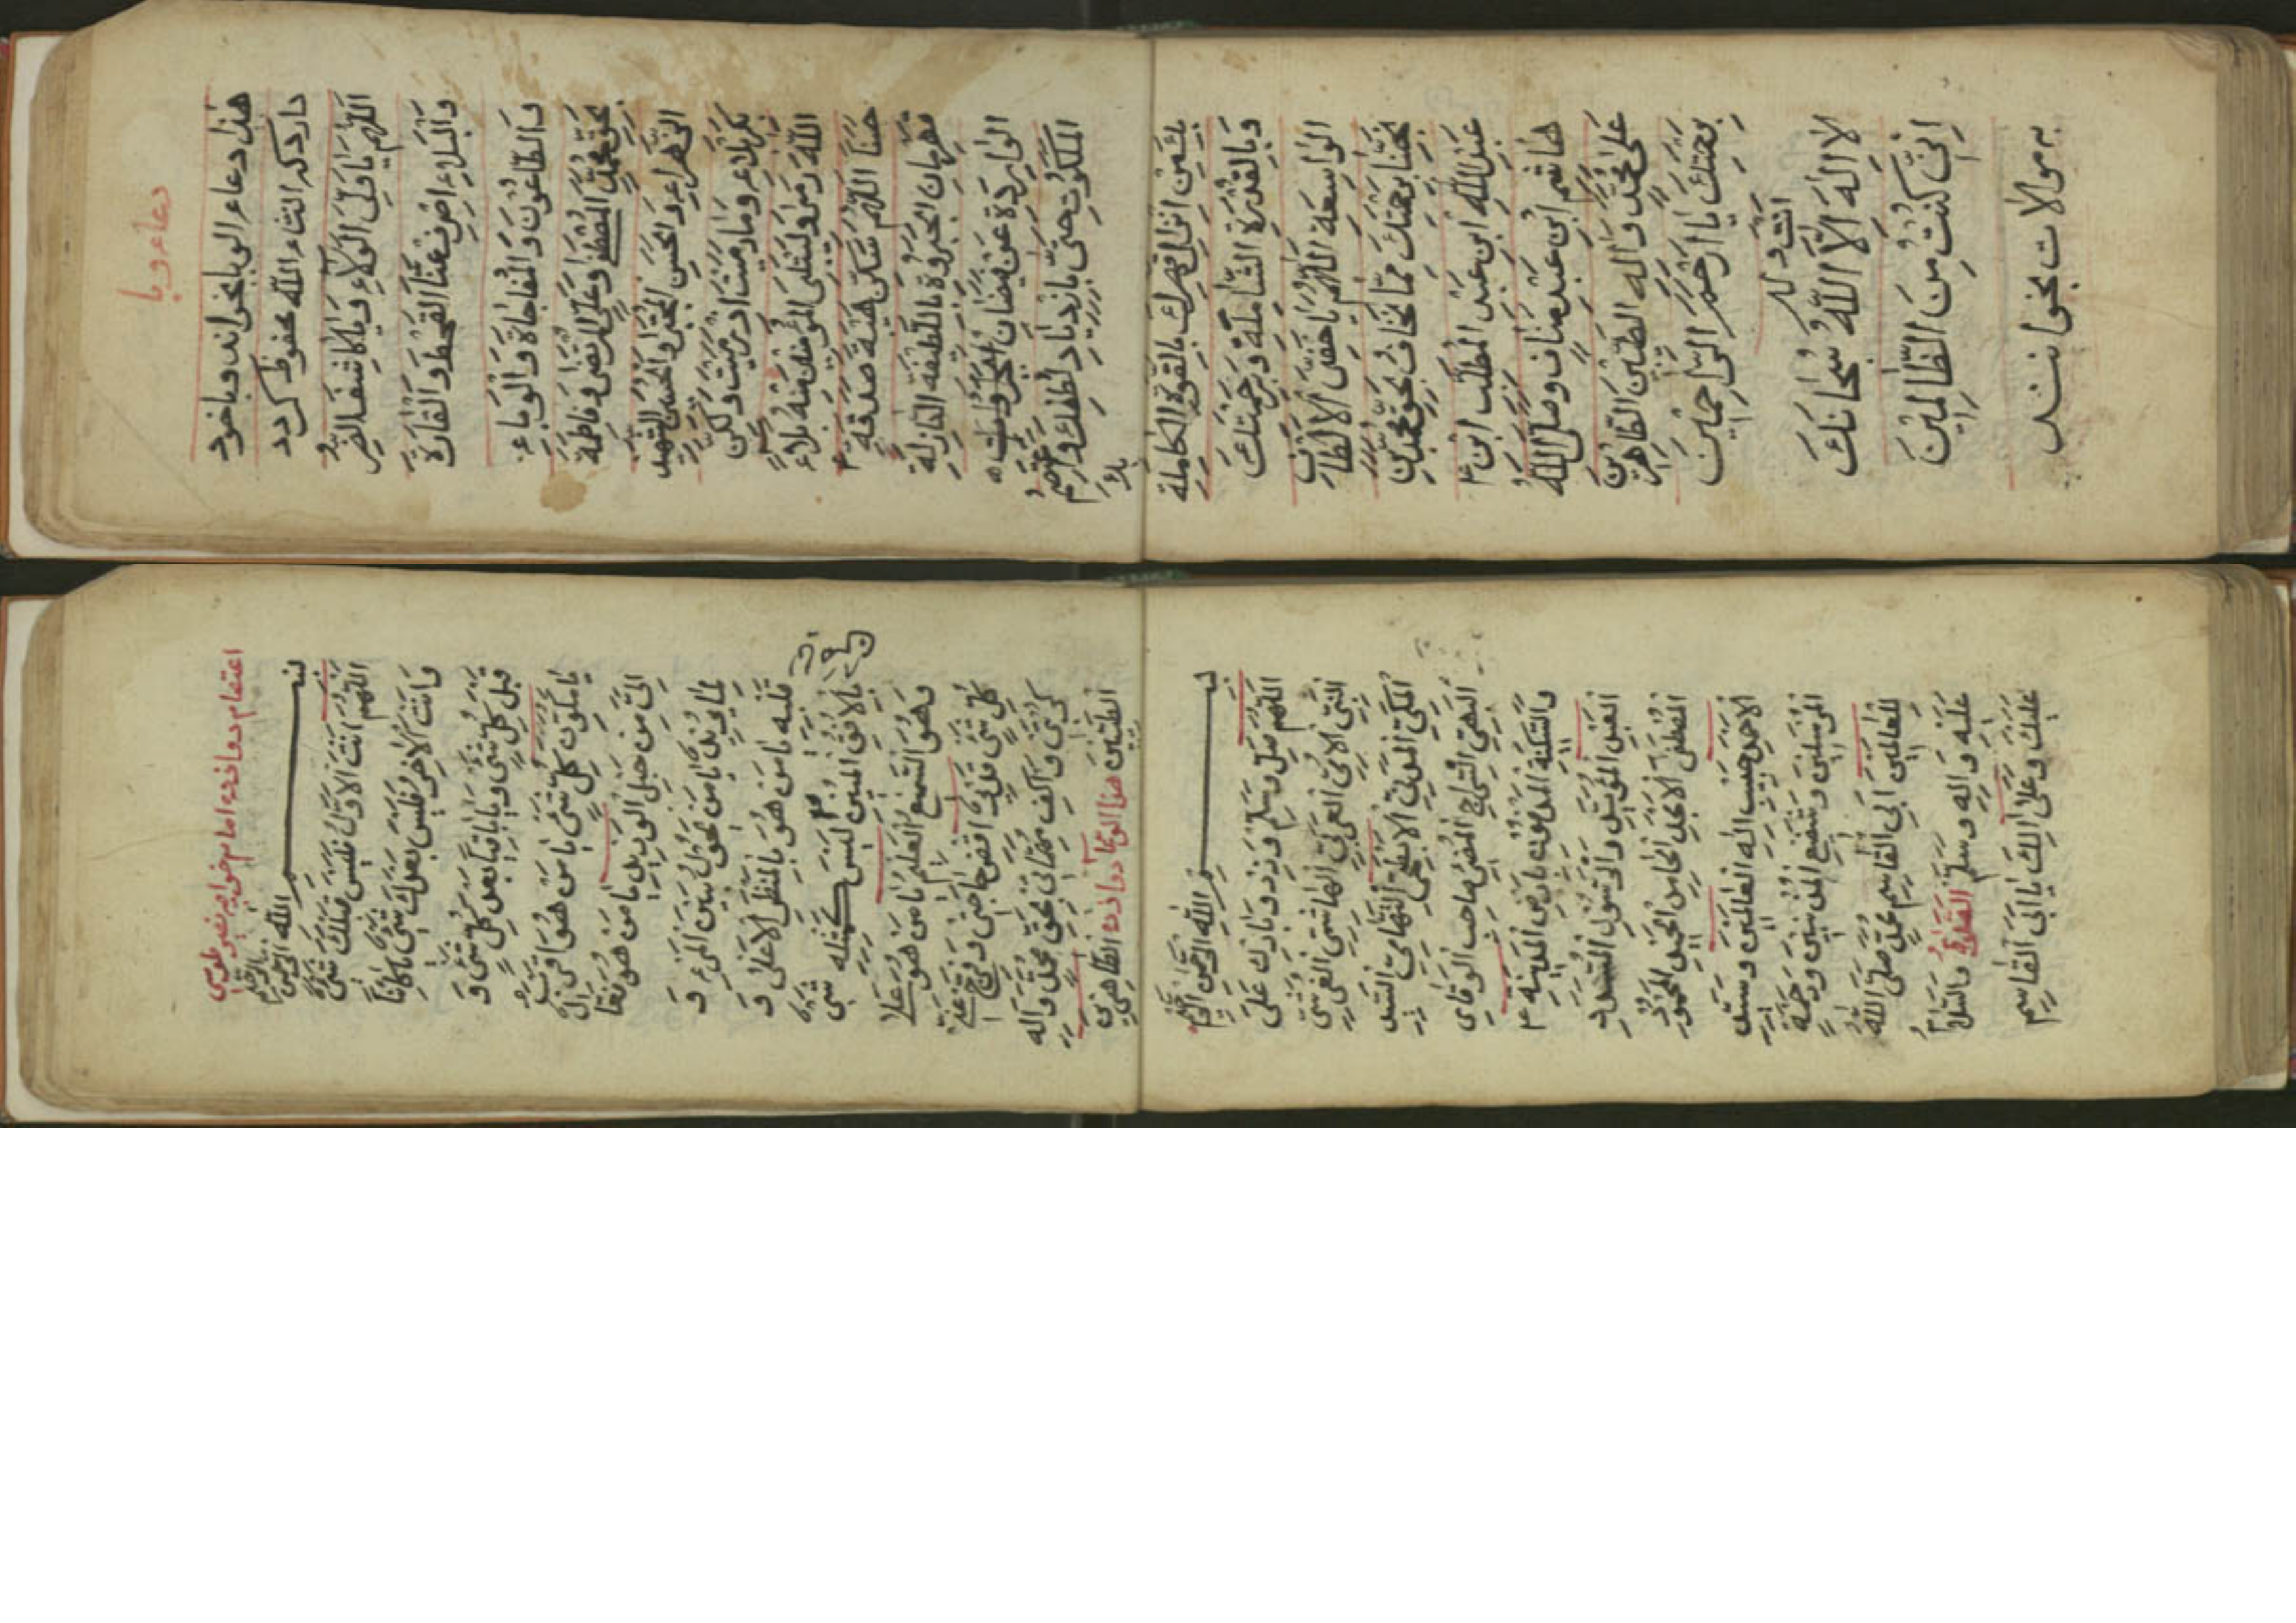 دعاء وبا
هذا دعاء الوبا بخواند و با خود
دارد که انشاء الله محفوظ کردد
اللهم یا ولی الولاء ویا کاشف الضر
والبلاء اصرف عنا القحط والغارة
والطاعون والمفاجاة والوباء
بحق محمد المصطفی وعلی المرتضی وفاطمة
الزهراء والحسن المجتبی والحسین الشهید
بکربلاء وما رمیت اذ رمیت ولکن
الله رمی ولیبلی المؤمنین منه بلاء
حسنا اللهم سکن هیبة صدمة
قهرمان الجبروة باللطیفة النازلة
الواردة من فیضان
الملکوت حتی
وبالقدرة الشاملة وبرحمتک
الواسعة اللهم یا خفی الالطاف
نجنا برحمتک مما نخاف بحق محمد بن
عبد الله ابن عبد المطلب ابن
هاشم ابن عبد مناف وصلی الله
علی محمد واله الطیبین الطاهرین
برحمتک یا ارحم الراحمین
لا اله الا الله سبحانک
انی کنت من الظالمین
به موالات بخوانند
اعتصام دوازده امام خواجه نصیر طوسی
بسم الله الرحمن الرحیم
اللهم انت الاول فلیس قبلک شئ
وانت الاخر فلیس بعدک شئ یا کائنا
قبل کل شئ ویا باقیا بعد کل شئ و
یا مکون کل شئ یا من هو اقرب
الی من حبل الورید یا من هو فعال
لما یرید یا من یحول بین المرء و
قلبه یا من هو بالمنظر الاعلی و
بالافق المبین یا من لیس کمثله شئ
وهو السمیع العلیم یا من هو علی
کل شئ قدیر اقض حاجتی وفرج
کربتی واکف مهماتی بحق محمد واله
الطیبین الطاهرین
بسم الله الرحمن الرحیم
اللهم صل وسلم وزد وبارک علی
النبی الامی العربی الهاشمی القرشی
المکی المدنی الابطحی التهامی السید
البهی السراج المضئ صاحب الوقار
والسکینة المدفون بارض المدینة
العبد المؤید والرسول المسدد
المصطفی الامجد المحمود
الاحمد حبیب اله العالمین وسید
المرسلین وشفیع المذنبین ورحمة
للعالمین ابی القاسم محمد صلی الله
علیه واله وسلم الصلوة والسلام
علیک وعلی الک یا ابا القاسم